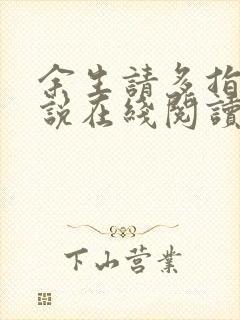 余生請多指
說在綫閱讀
下山营業